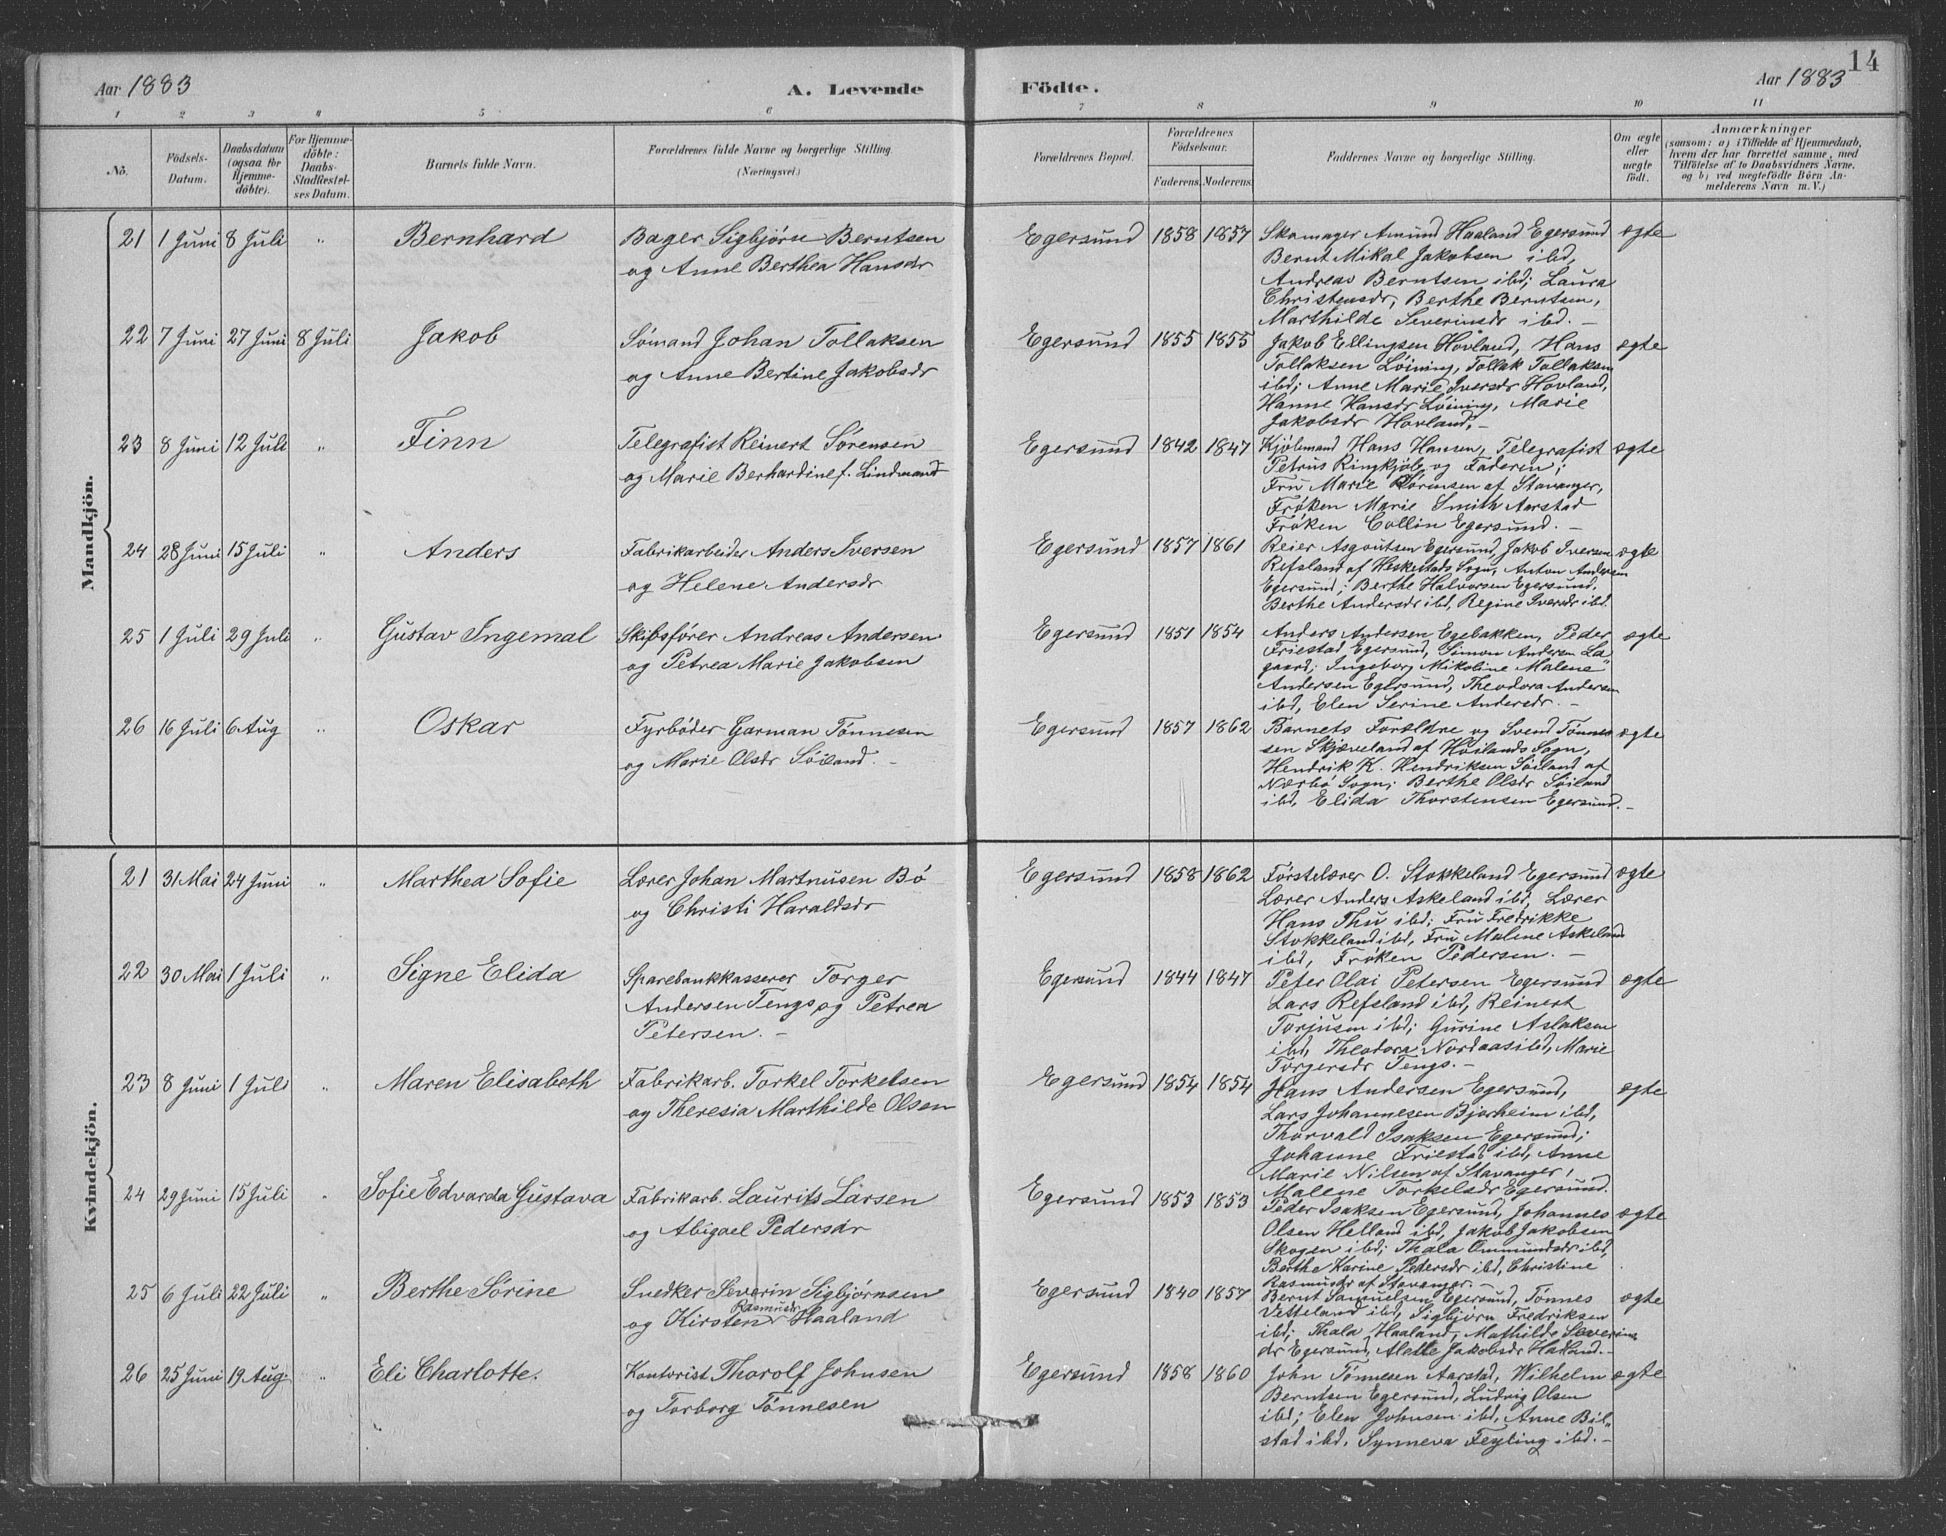 Aar 1883
A. Levende Födte.
Aar 1883
14
1 2 3 4 5 6 7 8 9 10 11
No.
Födsels-Datum.
Daabsdatum (ogsaa for Hjemme-döbte).
For Hjemme-döbte: Daabs-Stadfæstel-ses Datum.
Barnets fulde Navn.
Forældrenes fulde Navne og borgerlige Stilling. (Næringsvei.)
Forældrenes Bopæl.
Forældrenes Födselsaar.
Faderens. Moderens.
Faddernes Navne og borgerlige Stilling.
Om ægte eller uægte födt.
Anmærkninger
(saasom: a) i Tilfælde af Hjemmedaab, hvem der har forrettet samme, med Tilföielse af to Daabsvidners Navne, og b) ved uægtefödte Börn An-melderens Navn m. V.)
Mandkjön.
21 1 Juni 8 Juli " Bernhard
Bager Sigbjørn Berntsen
og Anne Berthea Hansdr
Egersund 1858 1857
Skomager Amund Haaland Egersund
Bernt Mikal Jakobsen ibd,
Andreas Berntsen ibd; Laura
Christensdr, Berthe Berntsen,
Marthilde Severinsdr ibd. –
ægte
22 7 Juni 27 Juni 8 Juli Jakob
Sømand Johan Tollaksen
og Anne Bertine Jakobsdr
Egersund 1855 1855
Jakob Ellingsen Hovland, Hans
Tollaksen Løining, Tollak Tollaksen
ibd; Anne Marie Iversdr Hovland,
Hanne Hansdr Løining, Marie
Jakobsdr Hovland. –
ægte
23 8 Juni 12 Juli " Finn
Telegrafist Reinert Sørensen
og Marie Berhardine f. Lindmand
Egersund 1842 1847
Kjøbmand Hans Hansen, Telegrafist
Petrus Ringkjøb og Faderen;
Fru Marie Sørensen af Stavanger,
Frøken Marie Smith Aarstad
Frøken Collin Egersund. –
ægte
24 28 Juni 15 Juli " Anders
Fabrikarbeider Anders Iversen
og Helene Andersdr
Egersund 1857 1861
Reier Asgoutsen Egersund, Jakob Iversen
Refsland af Heskestads Sogn, Anton Andersen
Egersund; Berthe Halvorsen Egersund,
Berthe Andersdr ibd, Regine Iversdr ibd.
ægte
25 1 Juli 29 Juli " Gustav Ingemal
Skibsfører Andreas Andersen
og Petrea Marie Jakobsen
Egersund 1851 1854
Anders Andersen Egebakken, Peder
Friestad Egersund, Simon Andersen La
gaard; Ingeborg Mikoline Malene
Andersen Egersund, Theodora Andersen
ibd, Elen Serine Andersdr. –
ægte
26 16 Juli 6 Aug " Oskar
Fyrbøder Garman Tønnesen
og Marie Olsdr Søiland. –
Egersund 1857 1862
Barnets Forældre og Svend Tønnes
sen Skjæveland af Høilands Sogn,
Hendrik K. Hendriksen Søiland af
Nærbø Sogn; Berthe Olsdr Søiland
ibd, Elida Thorstensen Egersund. –
ægte
Kvindekjön.
21 31 Mai 24 Juni " Marthea Sofie
Lærer Johan Martnusen Bø
og Christi Haraldsdr
Egersund 1858 1862
Førstelærer O. Stokkeland Egersund
Lærer Anders Askeland ibd, Lærer
Hans Thu ibd; Fru Fredrikke
Stokkeland ibd, Fru Malene Askeland
ibd, Frøken Pedersen. –
ægte
22 30 Mai 1 Juli " Signe Elida
Sparebankkasserer Torger
Andersen Tengs og Petrea
Petersen. –
Egersund 1844 1847
Peter Olai Petersen Egersund
Lars Refsland ibd, Reinert
Torjusen ibd; Gurine Aslaksen
ibd, Theodora Nordaas ibd, Marie
Torgersdr Tengs. –
ægte
23 8 Juni 1 Juli " Maren Elisabeth
Fabrikarb. Torkel Torkelsen
og Theresia Marthilde Olsen
Egersund 1854 1854
Hans Andersen Egersund,
Lars Johannesen Bjerheim ibd,
Thorvald Isaksen Egersund;
Johanne Friestad ibd, Anne
Marie Nilsen af Stavanger,
Malene Torkelsdr Egersund.
ægte
24 29 Juni 15 Juli " Sofie Edvarda Gustava
Fabrikarb. Laurits Larsen
og Abigael Pedersdr
Egersund 1853 1853
Peder Isaksen Egersund, Johannes
Olsen Helland ibd, Jakob Jakobsen
Skogen ibd; Thala Ommundsdr ibd,
Berthe Karine Pedersdr ibd, Christine
Rasmusdr af Stavanger. –
ægte
25 6 Juli 22 Juli " Berthe Sørine
Snedker Severin Sigbjørnsen
og Kirsten Rasmusdr Haaland
Egersund 1840 1857
Bernt Samuelsen Egersund, Tønnes
Vetteland ibd, Sigbjørn Fredriksen
ibd; Thala Haaland, Mathilde Severins
dr Egersund, Malle Jakobsdr Haland. –
ægte
26 25 Juni 19 Aug. " Eli Charlotte.
Kontorist Thorolf Johnsen
og Torborg Tønnesen
Egersund 1858 1860
John Tønnesen Aarstad, Wilhelm
Berntsen Egersund, Ludvig Olsen
ibd; Elen Johnsen ibd, Anne Bil-
stad ibd, Synneva Feyling ibd. –
ægte